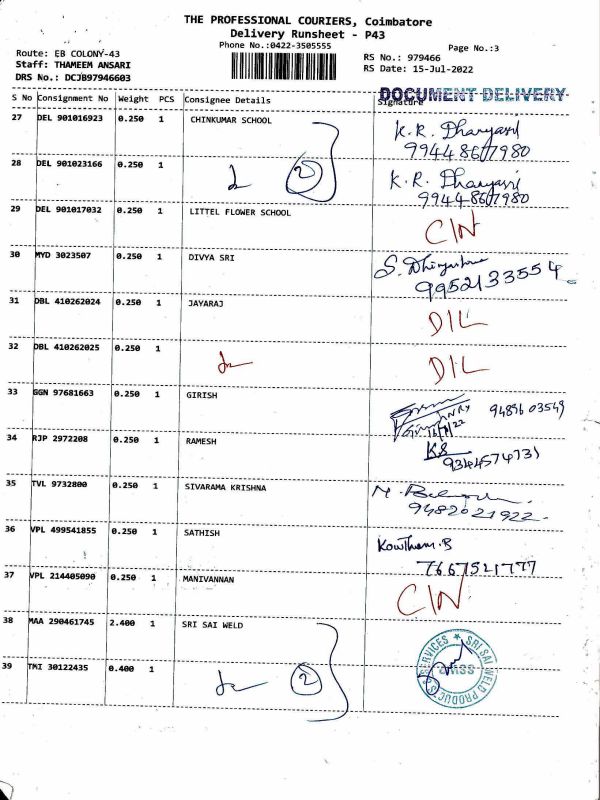 THE PROFESSIONAL COURIERS, Coimbatore
Delivery Runsheet - P43
Phone No.:0422-3505555
Page No.:3
Route: EB COLONY-43
Staff: THAMEEM ANSARI
DRS No.: DCJB97946603
RS No.: 979466
RS Date: 15-Jul-2022
DOCUMENT DELIVERY
S No Consignment No Weight PCS Consignee Details Signature
27 DEL 901016923 0.250 1 CHINKUMAR SCHOOL K.R. 
9944867980
28 DEL 901023166 0.250 1 2 K.R. 
9944867980
29 DEL 901017032 0.250 1 LITTEL FLOWER SCHOOL C/N
30 MYD 3023507 0.250 1 DIVYA SRI S.
9952133554
31 DBL 410262024 0.250 1 JAYARAJ D/L
32 DBL 410262025 0.250 1 D/L
33 GGN 97681663 0.250 1 GIRISH 9489603549
34 RJP 2972208 0.250 1 RAMESH KS
9344574731
35 TVL 9732800 0.250 1 SIVARAMA KRISHNA
9482021922
36 VPL 499541855 0.250 1 SATHISH Kowtham.B
7667521777
37 VPL 214405090 0.250 1 MANIVANNAN C/N
38 MAA 290461745 2.400 1 SRI SAI WELD
39 TMI 30122435 0.400 1 2
SRI SAI WELD PRODUCTS & SERVICES